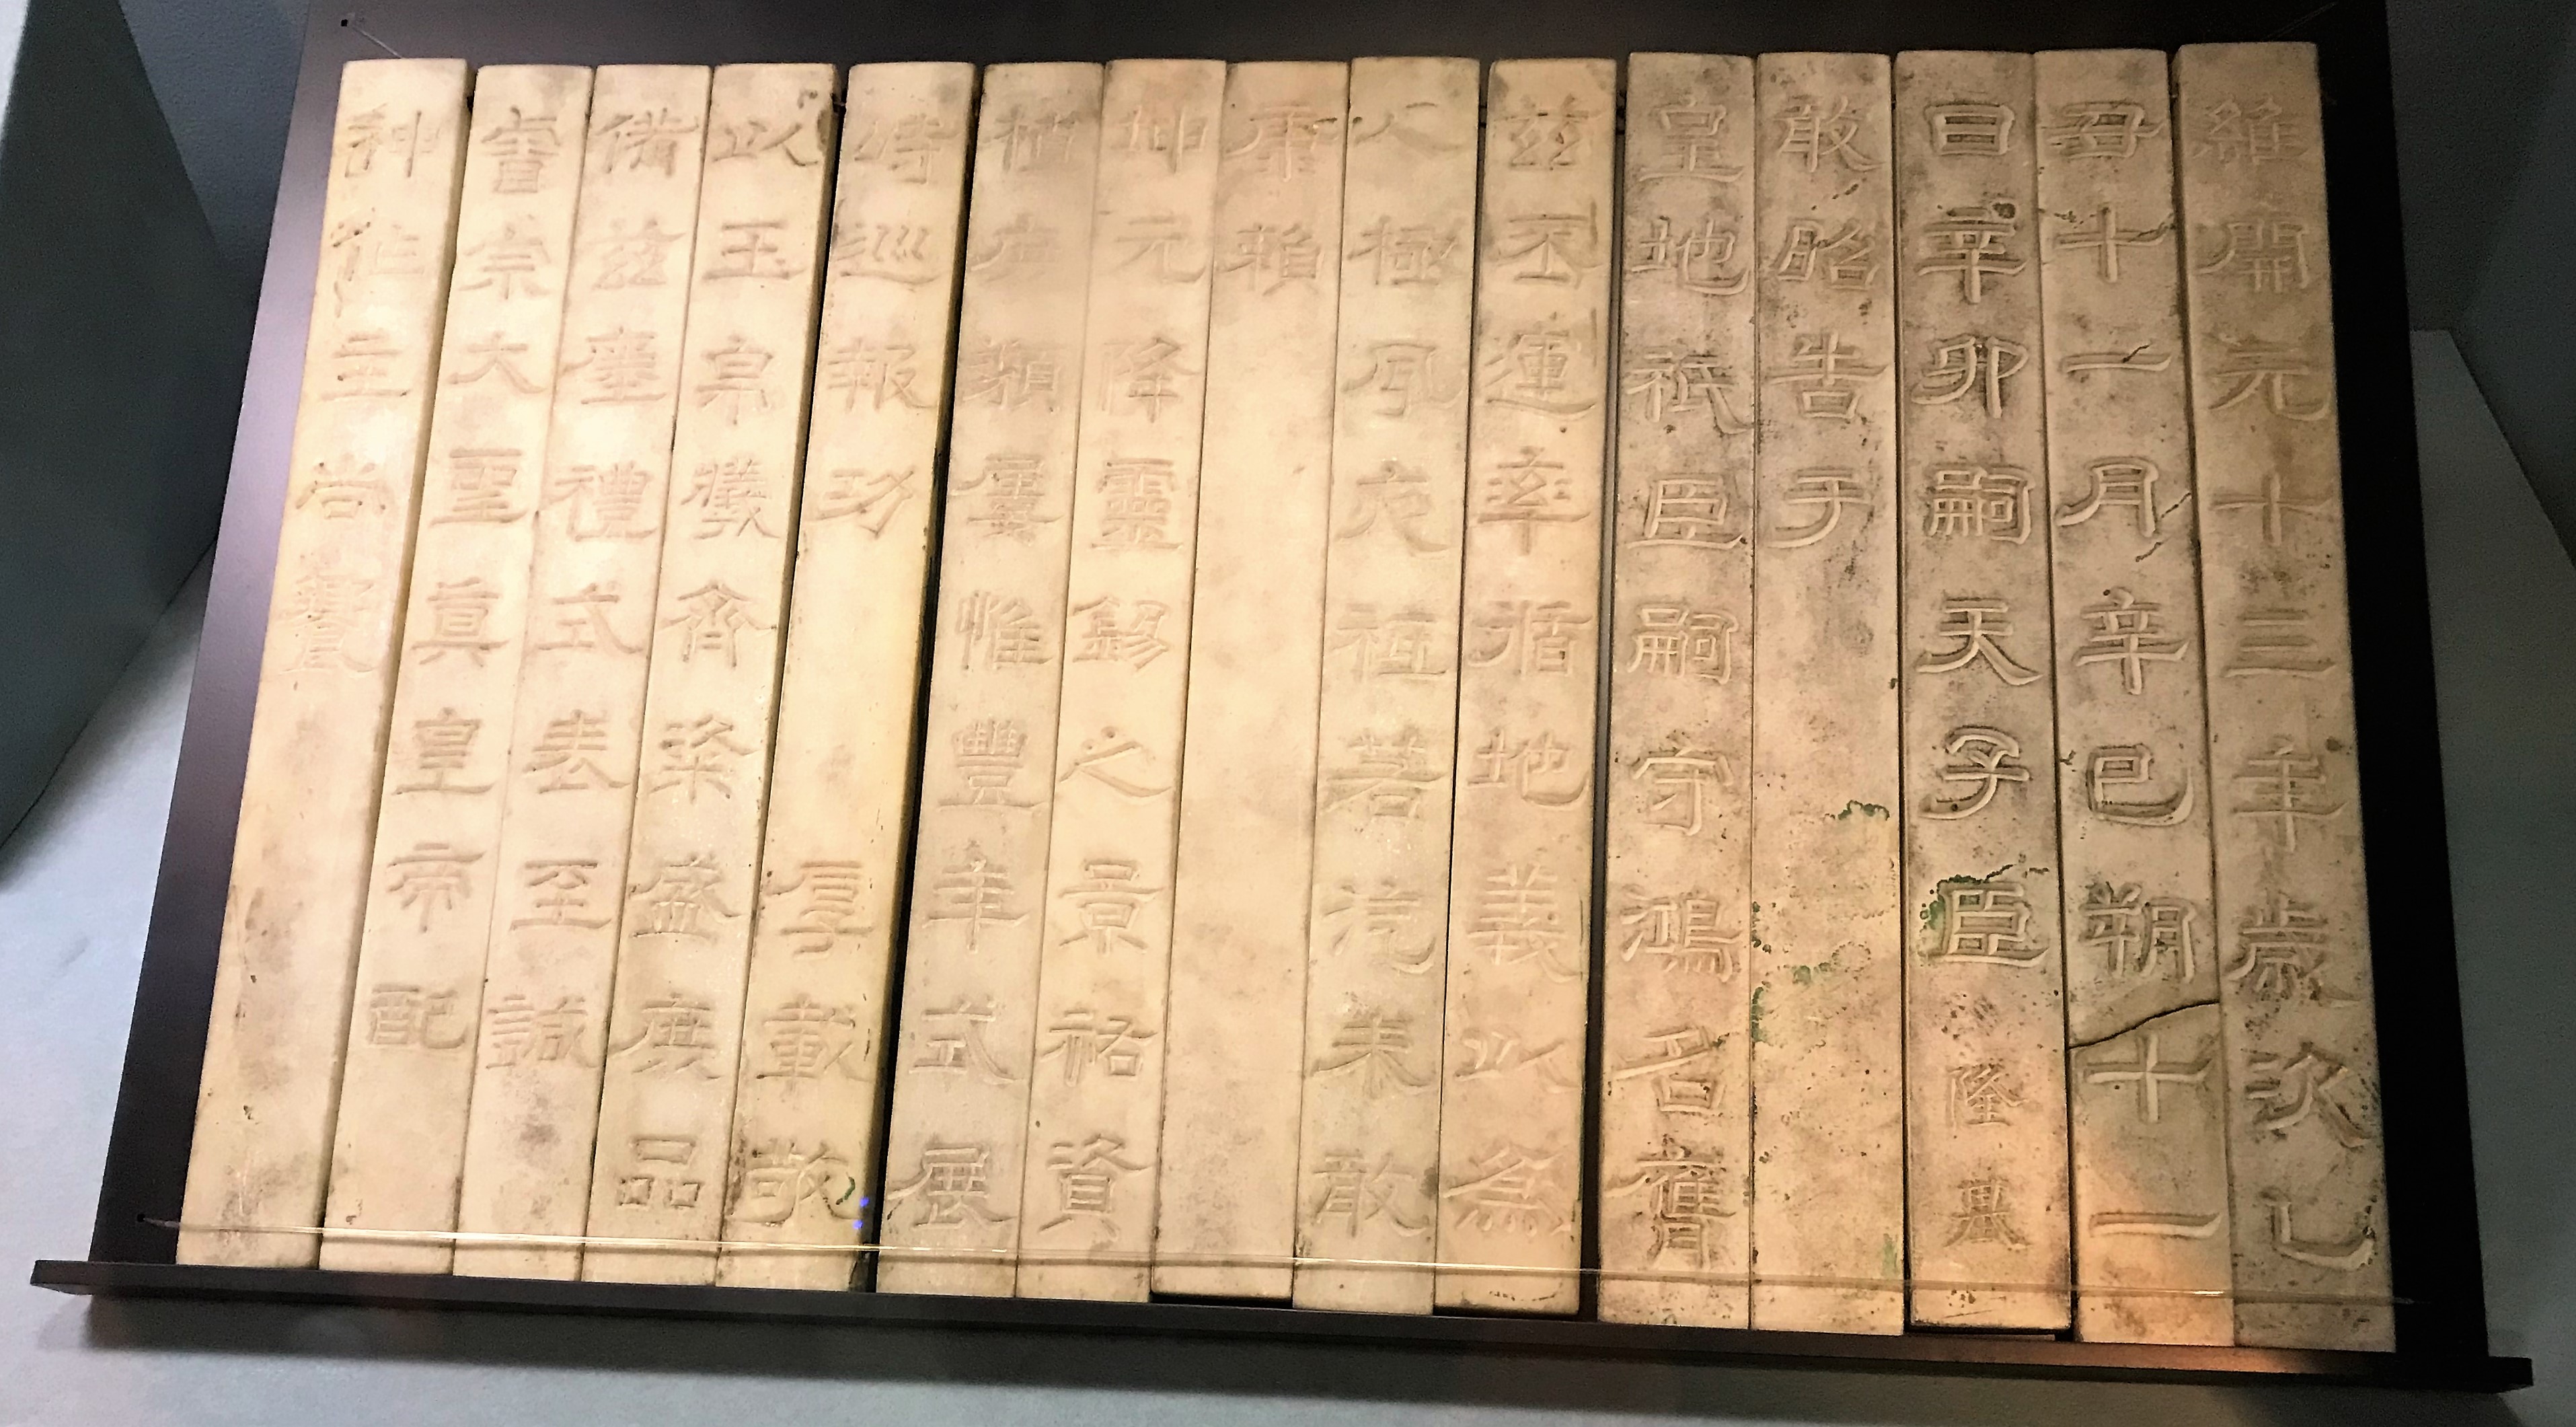 維開元十三年歲次乙
丑十一月辛巳朔十一
日辛卯嗣天子臣隆基
敢昭告于
皇地祇臣嗣守鴻名膺
茲丕運率循地義以爲
人極夙夜祗若汔未敢
康賴
坤元降靈錫之景祐資
植庶類屢惟豐年式展
時巡報功厚載敬
以玉帛犧齊粢盛庶品
備茲瘞禮式表至誠
睿宗大聖眞皇帝配
神作主尚饗